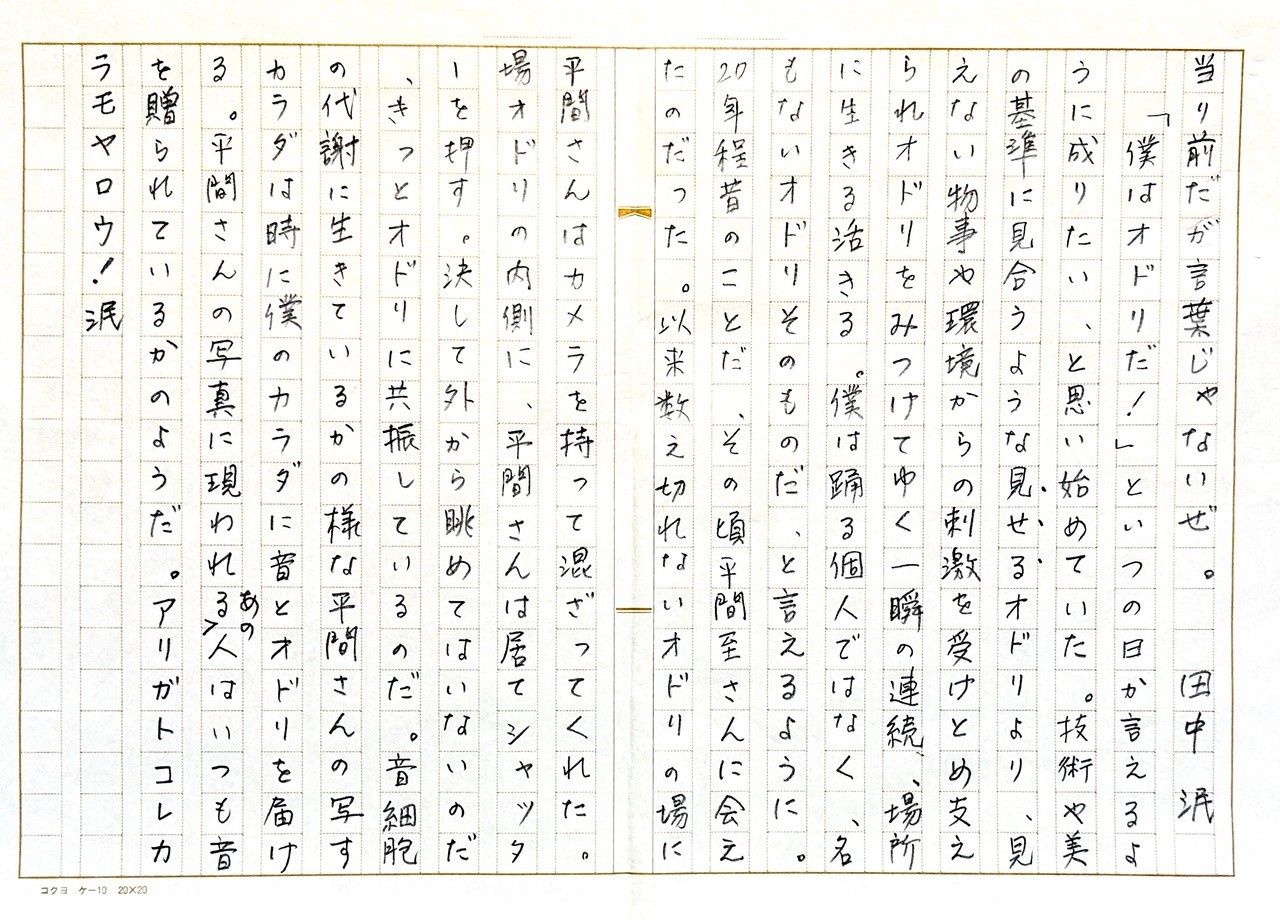 当り前だが言葉じゃないぜ。　田中　泯
「僕はオドリだ！」といつの日か言えるよ
うに成りたい、と思い始めていた。技術や美
の基準に見合うような見せるオドリより、見
えない物事や環境からの刺激を受けとめ支え
られオドリをみつけてゆく一瞬の連続、場所
に生きる活きる。僕は踊る個人ではなく、名
もないオドリそのものだ、と言えるように。
20年程昔のことだ、その頃平間至さんに会え
たのだった。以来数え切れないオドリの場に
平間さんはカメラを持って混ざってくれた。
場オドリの内側に、平間さんは居てシャッタ
ーを押す。決して外から眺めてはいないのだ
、きっとオドリに共振しているのだ。音細胞
の代謝に生きているかの様な平間さんの写す
カラダは時に僕のカラダに音とオドリを届け
る。平間さんの写真に現われるあの人はいつも音
を贈られているかのようだ。アリガトコレカ
ラモヤロウ！泯
コクヨ　ケー10　20×20